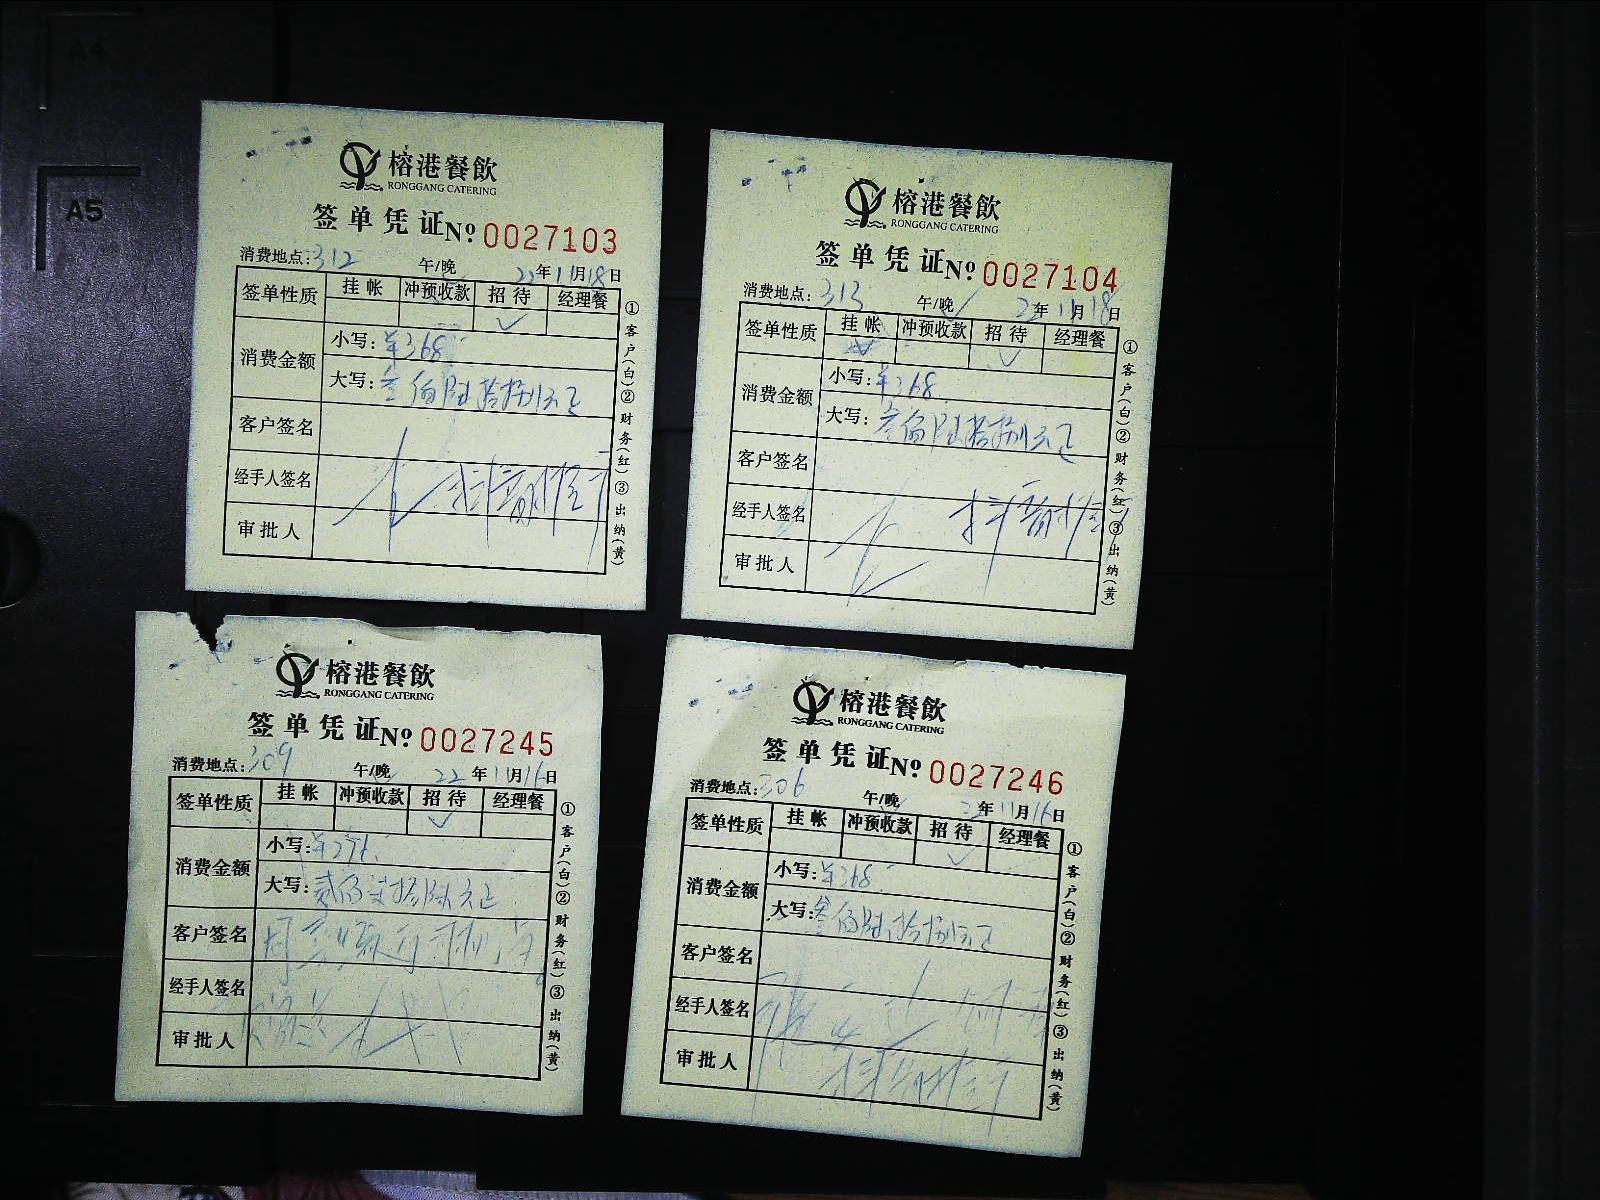 A4
A5
榕港餐飲
RONGGANG CATERING
签单凭证 Nº 0027103
消费地点：312 午/晚 22年11月18日
签单性质 挂帐 冲预收款 招待 经理餐
✓
消费金额 小写：¥368
大写：叁佰陆拾捌元正
客户签名
经手人签名
审批人
①客户(白)②财务(红)③出纳(黄)
榕港餐飲
RONGGANG CATERING
签单凭证 Nº 0027104
消费地点：313 午/晚 22年11月18日
签单性质 挂帐 冲预收款 招待 经理餐
✓
消费金额 小写：¥368
大写：叁佰陆拾捌元正
客户签名
经手人签名
审批人
①客户(白)②财务(红)③出纳(黄)
榕港餐飲
RONGGANG CATERING
签单凭证 Nº 0027245
消费地点：309 午/晚 22年11月16日
签单性质 挂帐 冲预收款 招待 经理餐
✓
消费金额 小写：¥276
大写：贰佰柒拾陆元正
客户签名
经手人签名
审批人
①客户(白)②财务(红)③出纳(黄)
榕港餐飲
RONGGANG CATERING
签单凭证 Nº 0027246
消费地点：306 午/晚 22年11月16日
签单性质 挂帐 冲预收款 招待 经理餐
✓
消费金额 小写：¥368
大写：叁佰陆拾捌元正
客户签名
经手人签名
审批人
①客户(白)②财务(红)③出纳(黄)